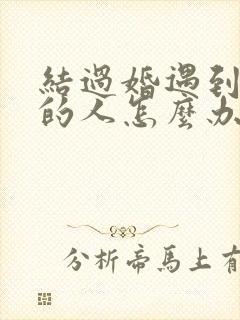 結過婚遇到
的人怎麼办
分析帝馬上有